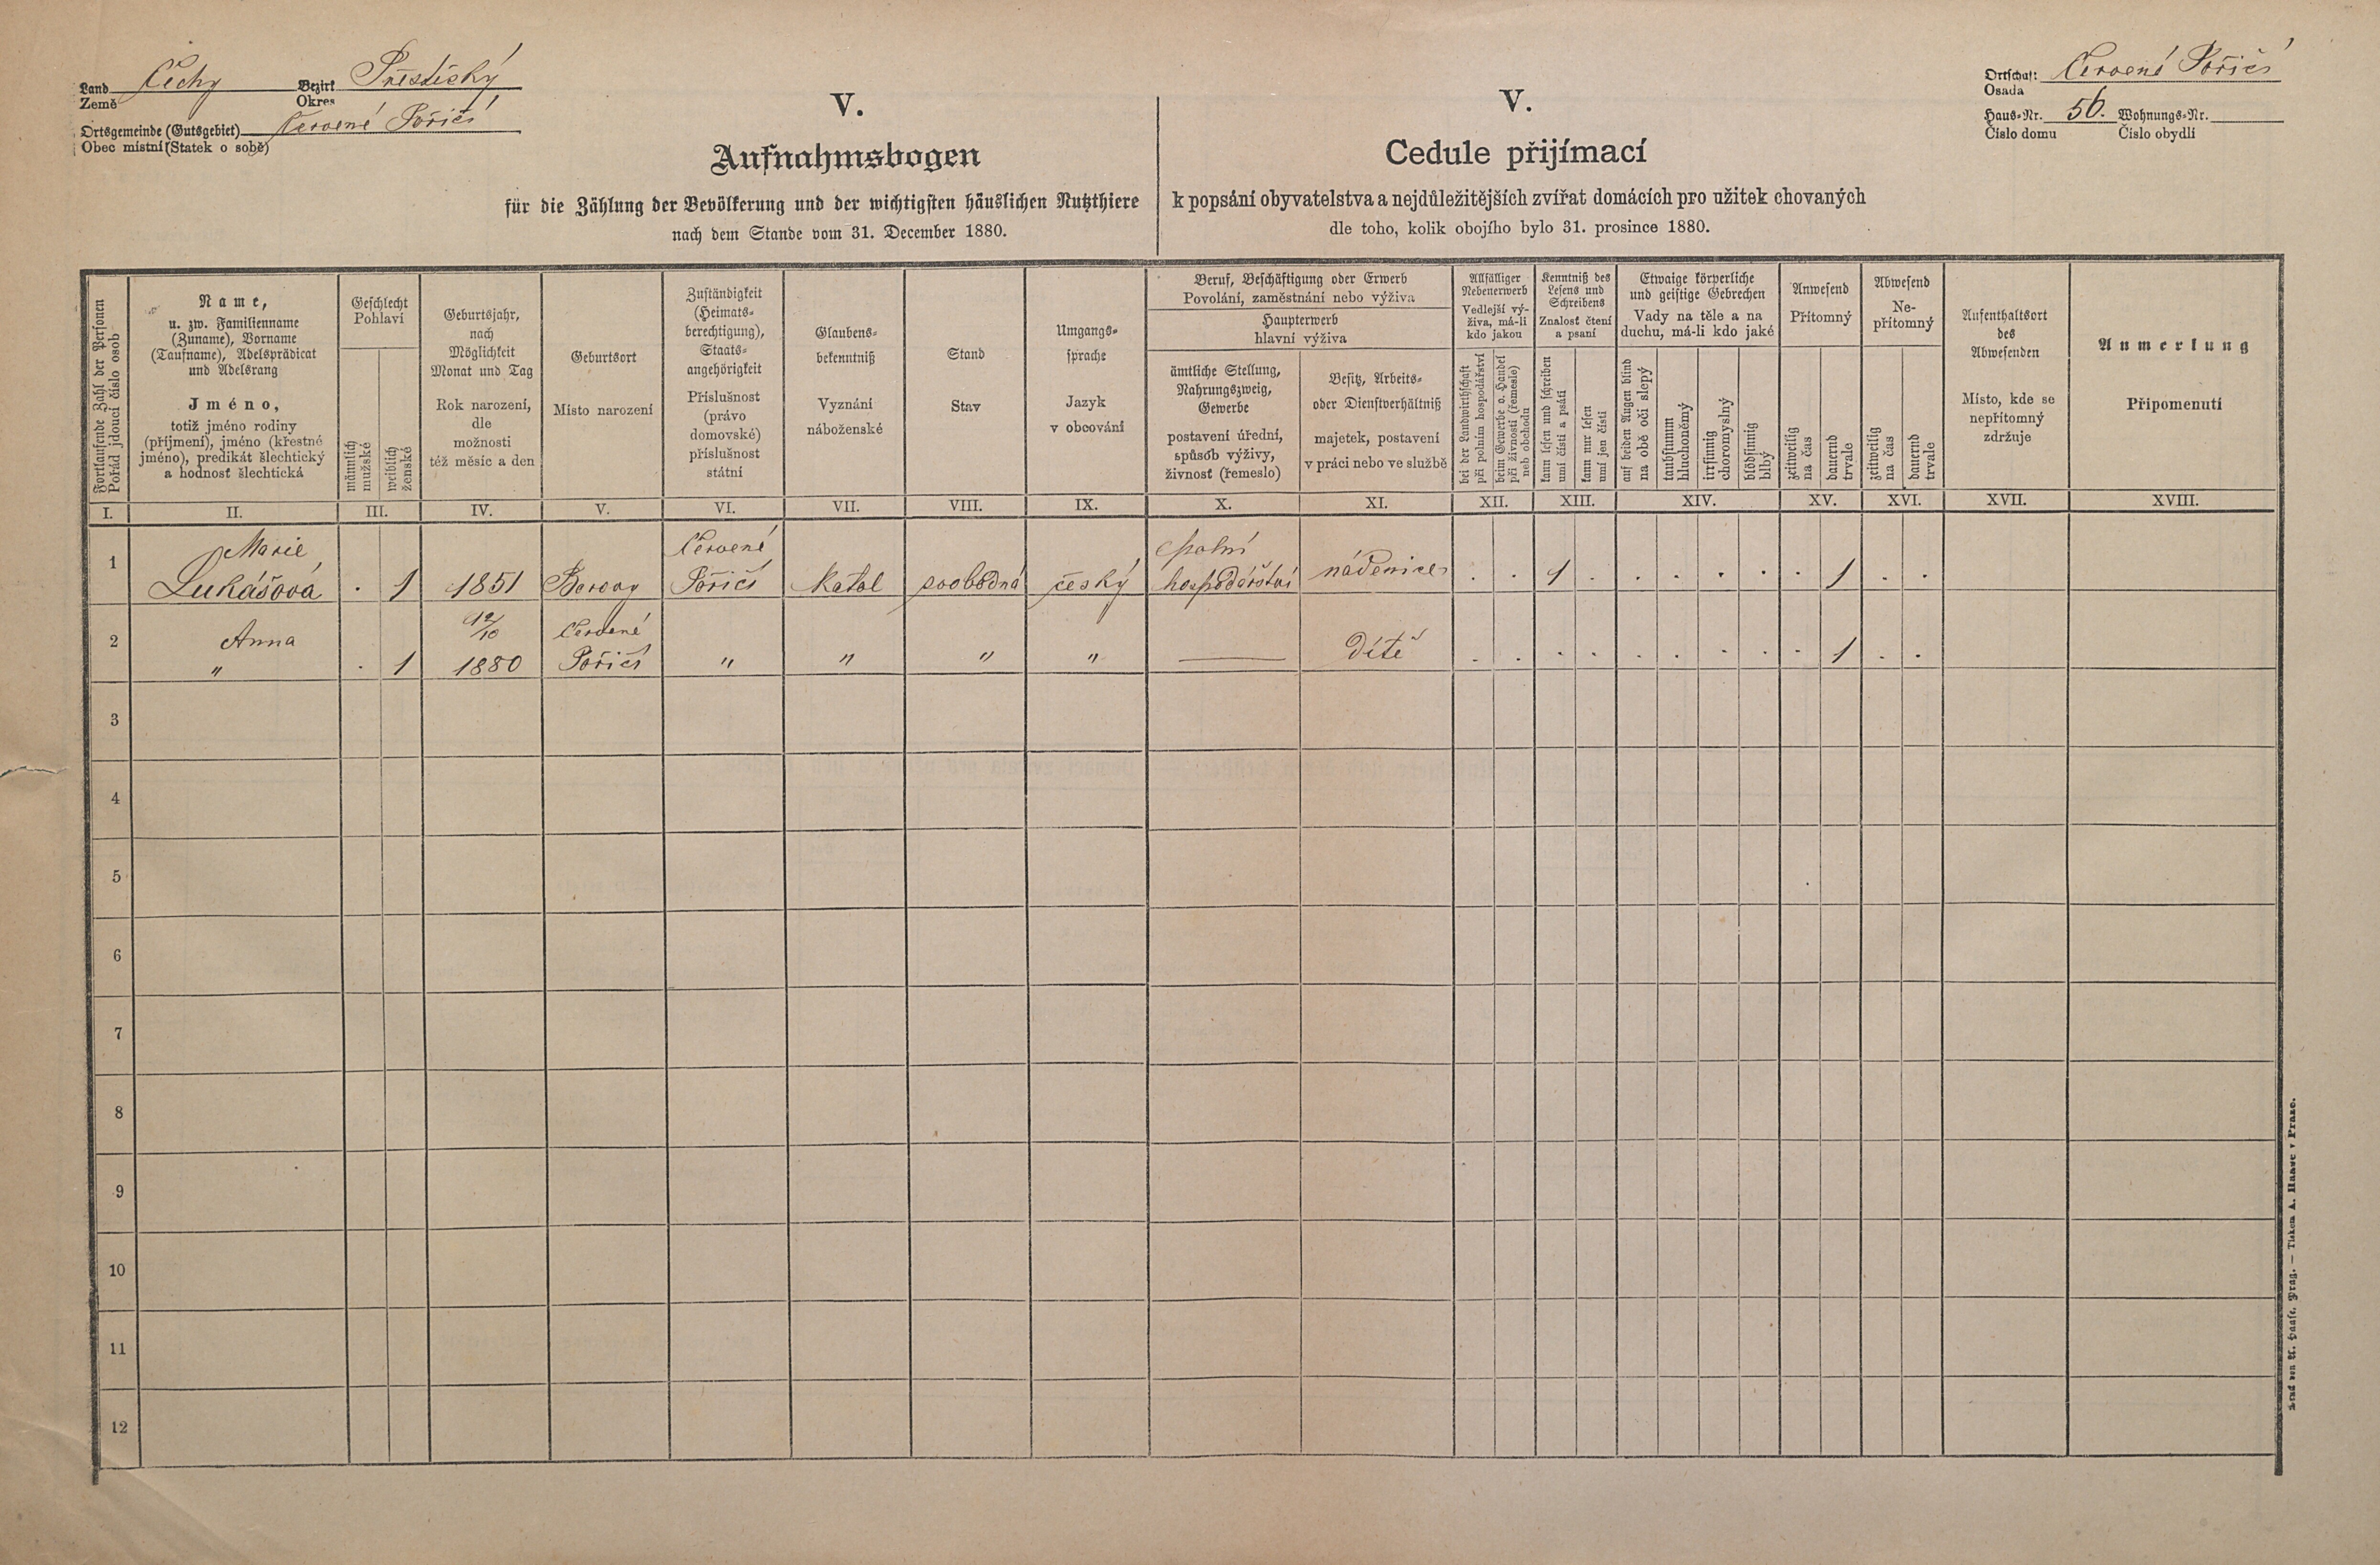 Land Čechy Bezirk Přeštický
Země Okres
Ortsgemeinde (Gutsgebiet) Červené Poříčí
Obec místní (Statek o sobě)
V.
Aufnahmsbogen
für die Zählung der Bevölkerung und der wichtigsten häuslichen Nutzthiere
nach dem Stande vom 31. December 1880.
V.
Cedule přijímací
k popsání obyvatelstva a nejdůležitějších zvířat domácích pro užitek chovaných
dle toho, kolik obojího bylo 31. prosince 1880.
Ortschaft Červené Poříčí
Osada
Haus-Nr. 56. Wohnungs-Nr.
Číslo domu Číslo obydlí
Fortlaufende Zahl der Personen
Pořád jdoucí číslo osob
Name,
u. zw. Familienname
(Zuname), Vorname
(Taufname), Adelsprädicat
und Adelsrang
Jméno,
totiž jméno rodiny
(příjmení), jméno (křestné
jméno), predikát šlechtický
a hodnost šlechtická
Geschlecht
Pohlaví
männlich
mužské
weiblich
ženské
Geburtsjahr,
nach
Möglichkeit
Monat und Tag
Rok narození,
dle
možnosti
též měsíc a den
Geburtsort
Místo narození
Zuständigkeit
(Heimats-
berechtigung),
Staats-
angehörigkeit
Příslušnost
(právo
domovské)
příslušnost
státní
Glaubens-
bekenntniß
Vyznání
náboženské
Stand
Stav
Umgangs-
sprache
Jazyk
v obcování
Beruf, Beschäftigung oder Erwerb
Povolání, zaměstnání nebo výživa
Haupterwerb
hlavní výživa
ämtliche Stellung,
Nahrungszweig,
Gewerbe
postavení úřední,
způsob výživy,
živnost (řemeslo)
Besitz, Arbeits-
oder Dienstverhältniß
majetek, postavení
v práci nebo ve službě
Allfälliger
Nebenerwerb
Vedlejší vý-
živa, má-li
kdo jakou
bei der Landwirthschaft
při polním hospodářství
beim Gewerbe o. Handel
při živnosti (řemesle)
neb obchodu
Kenntniß des
Lesens und
Schreibens
Znalost čtení
a psaní
kann lesen und schreiben
umí čísti a psáti
kann nur lesen
umí jen čísti
Etwaige körperliche
und geistige Gebrechen
Vady na těle a na
duchu, má-li kdo jaké
auf beiden Augen blind
na obě oči slepý
taubstumm
hluchoněmý
irrsinnig
choromyslný
blödsinnig
blbý
Anwesend
Přítomný
zeitweilig
na čas
dauernd
trvale
Abwesend
Ne-
přítomný
zeitweilig
na čas
dauernd
trvale
Aufenthaltsort
des
Abwesenden
Místo, kde se
nepřítomný
zdržuje
Anmerkung
Připomenutí
I. II. III. IV. V. VI. VII. VIII. IX. X. XI. XII. XIII. XIV. XV. XVI. XVII. XVIII.
Marie Červené polní
1 Lukášová . 1 1851 Borovy Poříčí Katol svobodná český hospodářství nádenice . . 1 . . . . . . 1 . .
12/10 Červené
2 Anna
" . 1 1880 Poříčí " " " " — Dítě . . . . . . . . . 1 . .
3
4
5
6
7
8
9
10
11
12
Druck von A. Haase, Prag. — Tiskem A. Haase v Praze.